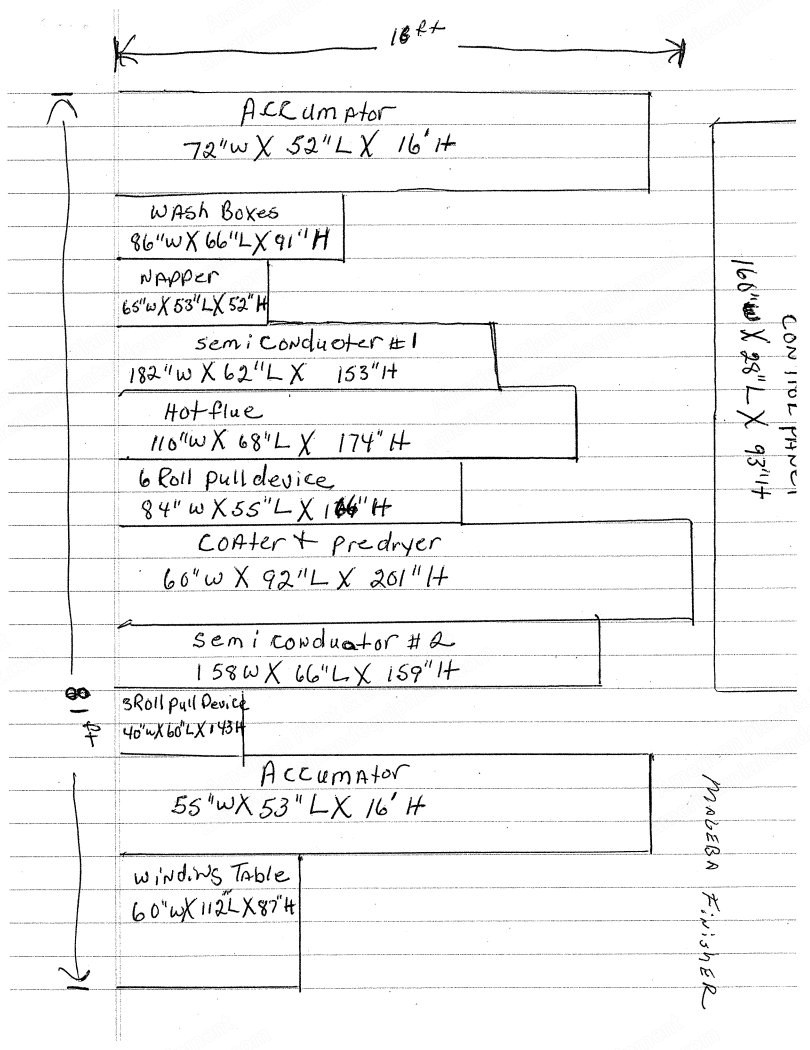 16 ft
ACCumAtor
72"W X 52"L X 16'H
WASh Boxes
86"W X 66"L X 91"H
NAPPer
65"W X 53"L X 52"H
Semi Conducter #1
182"W X 62"L X 153"H
Hotflue
110"W X 68"L X 174"H
6 Roll pull device
84"W X 55"L X "H
COAter + predryer
60"W X 92"L X 201"H
Semi conductor #2
158W X 66"L X 159"H
3Roll pull Device
40"W X 60"L X 143H
ACCumAtor
55"W X 53"L X 16'H
winding Table
60"W X 112"L X 87"H
81 ft
CONTROL PANEL
X 28"L X 93"H
MAGEBA FiNisHER